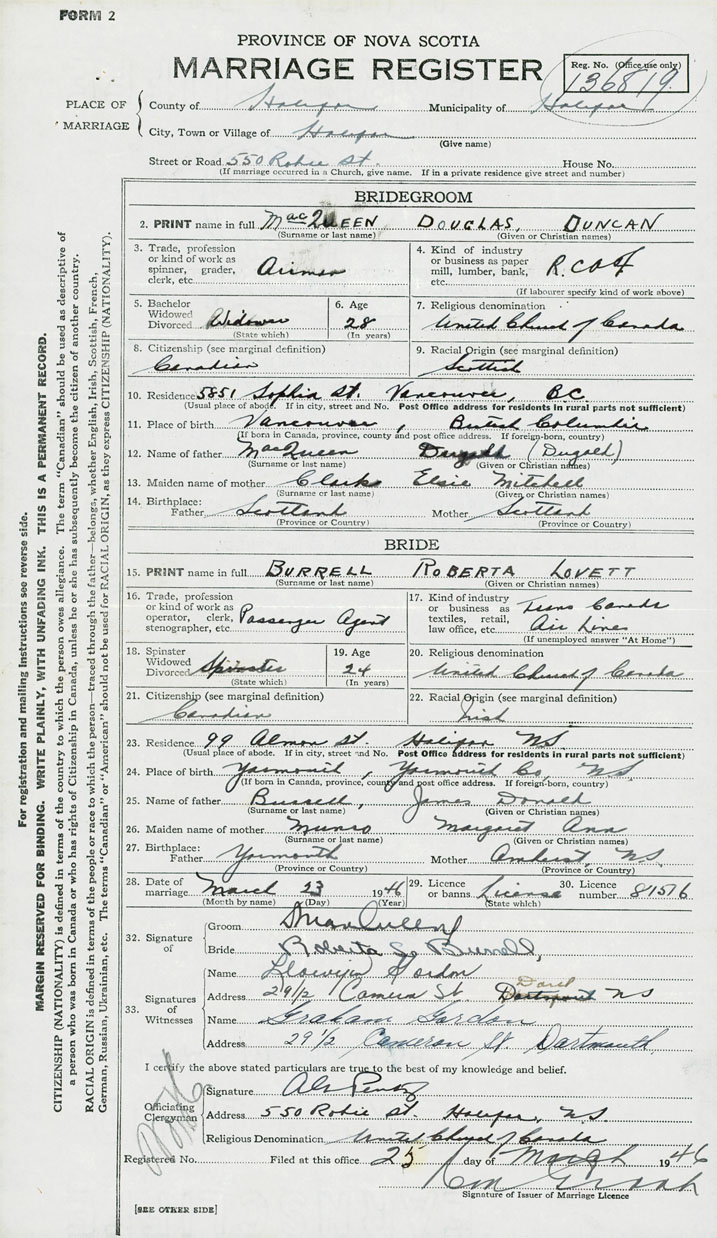 FORM 2
PROVINCE OF NOVA SCOTIA
MARRIAGE REGISTER
Reg. No. (Office use only)
136819
PLACE OF MARRIAGE
County of Halifax Municipality of Halifax
City, Town or Village of Halifax
(Give name)
Street or Road 550 Robie St. House No.
(If marriage occurred in a Church, give name. If in a private residence give street and number)
BRIDEGROOM
2. PRINT name in full MacQUEEN DOUGLAS, DUNCAN
(Surname or last name) (Given or Christian names)
3. Trade, profession or kind of work as spinner, grader, clerk, etc. Airman
4. Kind of industry or business as paper mill, lumber, bank, etc. R.C.A.F
(If labourer specify kind of work above)
5. Bachelor Widowed Divorced Widower
(State which)
6. Age 28
(In years)
7. Religious denomination
United Church of Canada
8. Citizenship (see marginal definition)
Canadian
9. Racial Origin (see marginal definition)
Scottish
10. Residence 5851 Sophia St. Vancouver, BC
(Usual place of abode. If in city, street and No. Post Office address for residents in rural parts not sufficient)
11. Place of birth Vancouver, British Columbia
(If born in Canada, province, county and post office address. If foreign-born, country)
12. Name of father MacQueen (Dugald)
(Surname or last name) (Given or Christian names)
13. Maiden name of mother Clarke Elsie Mitchell
(Surname or last name) (Given or Christian names)
14. Birthplace: Father Scotland Mother Scotland
(Province or Country) (Province or Country)
BRIDE
15. PRINT name in full BURRELL ROBERTA LOVETT
(Surname or last name) (Given or Christian names)
16. Trade, profession or kind of work as operator, clerk, stenographer, etc. Passenger Agent
17. Kind of industry or business as textiles, retail, law office, etc. Trans Canada Air Lines
(If unemployed answer "At Home")
18. Spinster Widowed Divorced Spinster
(State which)
19. Age 24
(In years)
20. Religious denomination
United Church of Canada
21. Citizenship (see marginal definition)
Canadian
22. Racial Origin (see marginal definition)
Irish
23. Residence 99 Almon St. Halifax NS
(Usual place of abode. If in city, street and No. Post Office address for residents in rural parts not sufficient)
24. Place of birth Yarmouth, Yarmouth Co, NS
(If born in Canada, province, county and post office address. If foreign-born, country)
25. Name of father Burrell, James Donald
(Surname or last name) (Given or Christian names)
26. Maiden name of mother Munro Margaret Ann
(Surname or last name) (Given or Christian names)
27. Birthplace: Father Yarmouth Mother Amherst, NS
(Province or Country) (Province or Country)
28. Date of marriage March 23 1946
(Month by name) (Day) (Year)
29. Licence or banns License
(State which)
30. Licence number 81576
32. Signature of
Groom D MacQueen
Bride Roberta L. Burrell,
33. Signatures of Witnesses
Name Llewellyn Gordon
Address 29 1/2 Cameron St. Dartmouth NS
Name Graham Gordon
Address 29 1/2 Cameron St. Dartmouth
I certify the above stated particulars are true to the best of my knowledge and belief.
Officiating Clergyman
Signature
Address 550 Robie St. Halifax, NS
Religious Denomination United Church of Canada
Registered No. Filed at this office 25 day of March 1946
Signature of Issuer of Marriage Licence
[SEE OTHER SIDE]
For registration and mailing instructions see reverse side.
MARGIN RESERVED FOR BINDING. WRITE PLAINLY, WITH UNFADING INK. THIS IS A PERMANENT RECORD.
CITIZENSHIP (NATIONALITY) is defined in terms of the country to which the person owes allegiance. The term "Canadian" should be used as descriptive of
a person who was born in Canada or who has rights of Citizenship in Canada, unless he or she has subsequently become the citizen of another country.
RACIAL ORIGIN is defined in terms of the people or race to which the person—traced through the father—belongs, whether English, Irish, Scottish, French,
German, Russian, Ukrainian, etc. The terms "Canadian" or "American" should not be used for RACIAL ORIGIN, as they express CITIZENSHIP (NATIONALITY).